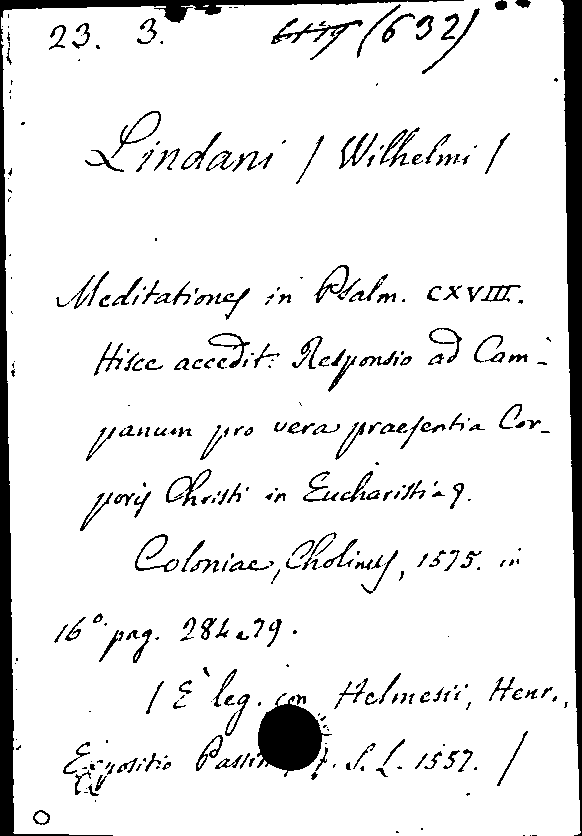 23. 3. (632)
Lindani / Wilhelmi /
Meditationes in Psalm. CXVIII.
Hisce accedit: Responsio ad Cam-
panum pro vera praesentia Cor-
poris Christi in Eucharistia
Coloniae, Cholinus, 1575. in
16° pag. 284 e 79.
/ È leg. con Helmesii, Henr.,
Expositio S. L. 1557. /